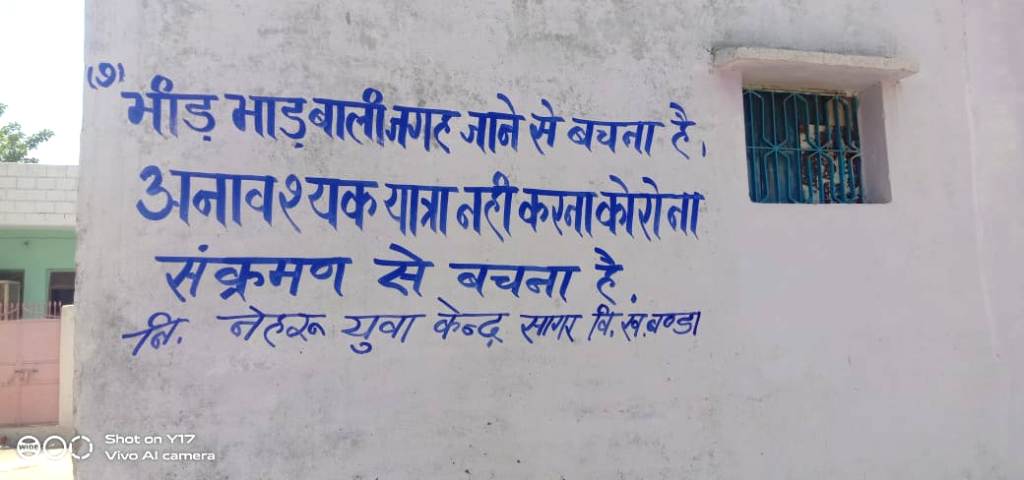 (७)
भीड़ भाड़ बाली जगह जाने से बचना है,
अनावश्यक यात्रा नही करना कोरोना
संक्रमण से बचना है.
नि. नेहरू युवा केन्द्र सागर वि.खं.बण्डा
Shot on Y17
Vivo AI camera